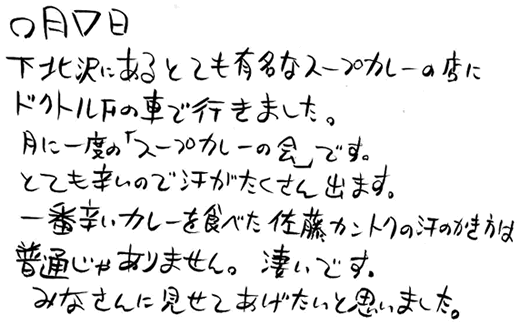 ○月▽日
下北沢にあるとても有名なスープカレーの店に
ドクトル下の車で行きました。
月に一度の「スープカレーの会」です。
とても辛いので汗がたくさん出ます。
一番辛いカレーを食べた佐藤カントクの汗のかき方は
普通じゃありません。凄いです。
みなさんに見せてあげたいと思いました。